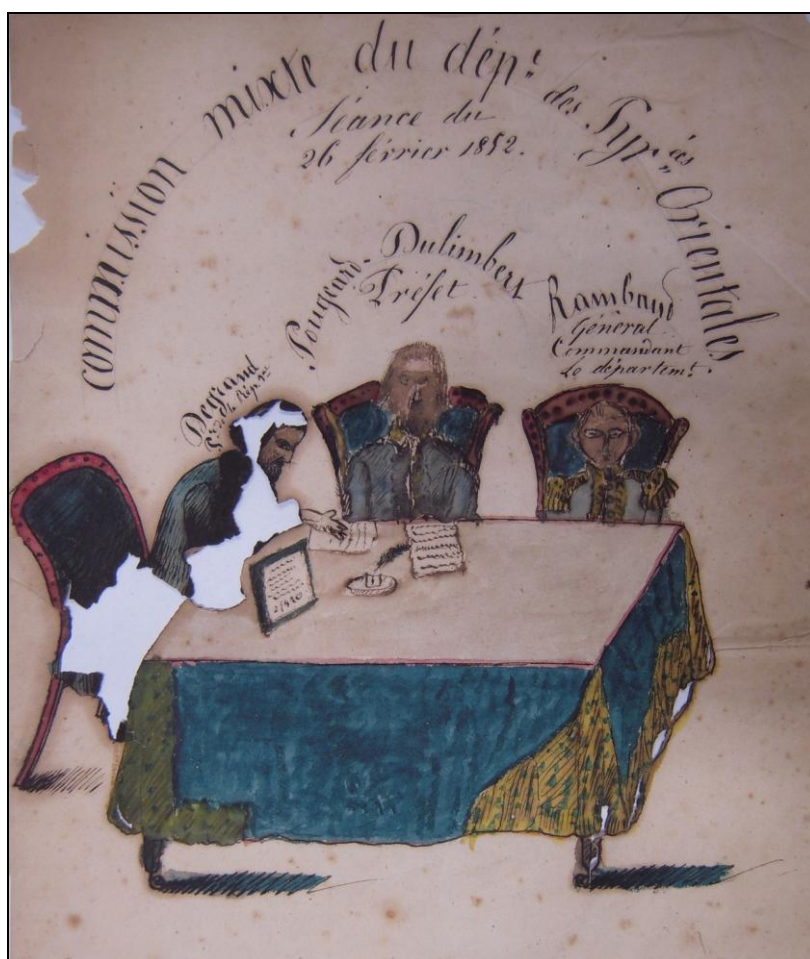 commission mixte du dépt. des Pyr.ées Orientales
Séance du
26 février 1852.
Pougeard-Dulimbert
Préfet
Rambaud
Général
Commandant
le départemt.
Degrand